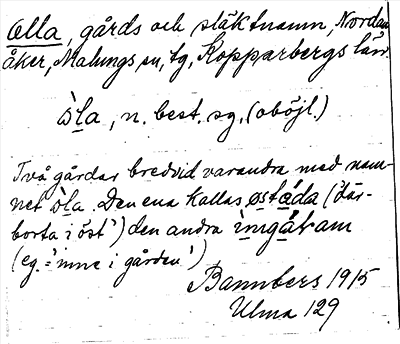 Olla, gårds och släktnamn, Nordan
åker, Malungs sn, tg, Kopparbergs län.
òla, n. best. sg, (oböjl.)
Två gårdar bredvid varandra med nam-
net òla. Den ena kallas østøda ('där-
borta i öst') den andra ìnigåram
(eg. 'inne i gården')
Bannbers 1915
Ulma 129